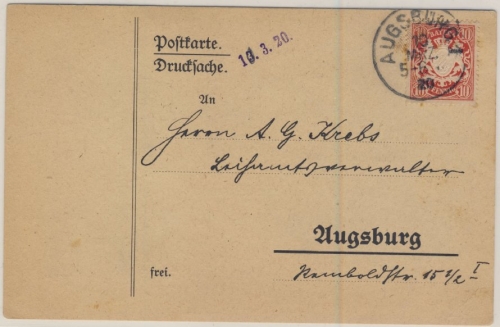 Postkarte.
Drucksache.
13. 3. 20.
AUGSBURG 1
10 10
An
Herrn A. G. Krebs
Leihamtsverwalter
Augsburg
frei.
Remboldstr. 15 1/2 I